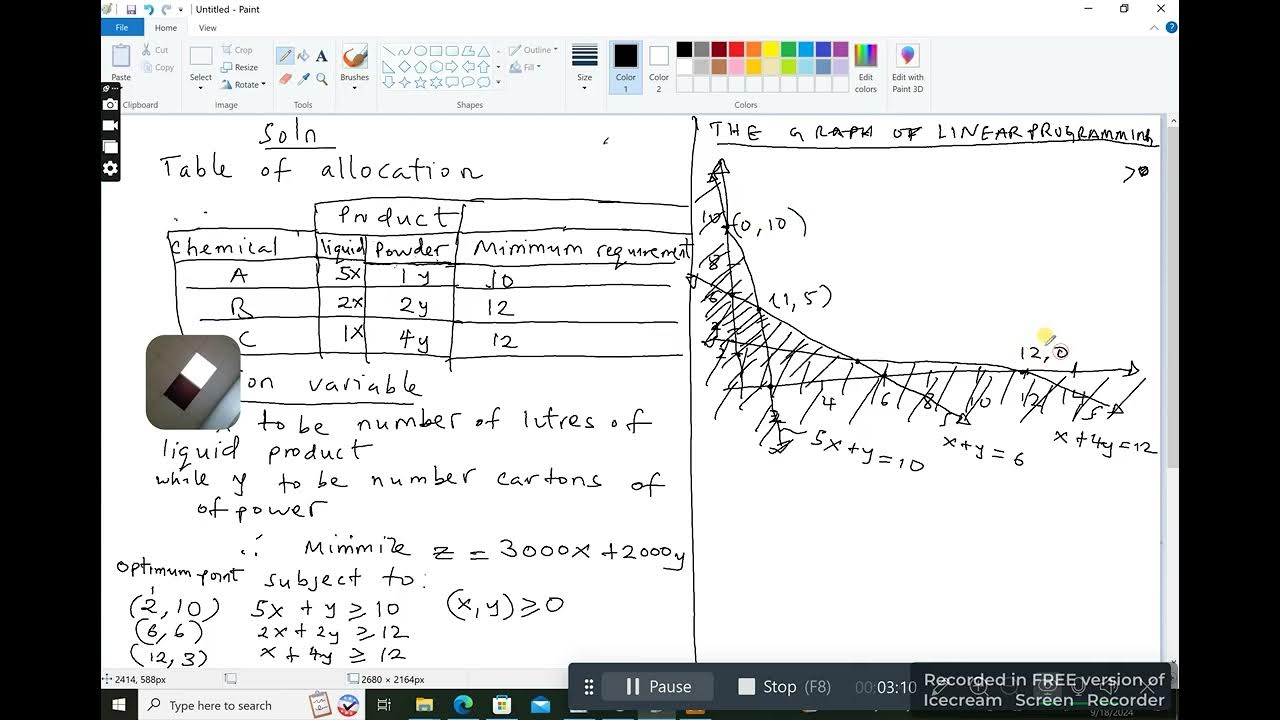 Untitled - Paint
File Home View
Paste Cut Copy Select Crop Resize Rotate Brushes Outline Fill Size Color 1 Color 2 Edit colors Edit with Paint 3D
Clipboard Image Tools Shapes Colors
Soln
Table of allocation
Product
Chemical liquid Powder Minimum requirement
A 5x 1y 10
B 2x 2y 12
C 1x 4y 12
ion variable
to be number of litres of
liquid product
while y to be number cartons of
of power
∴ Minimize z = 3000x + 2000y
optimum point subject to:
(2, 10) 5x + y ≥ 10 (x, y) ≥ 0
(6, 6) 2x + 2y ≥ 12
(12, 3) x + 4y ≥ 12
THE GRAPH OF LINEAR PROGRAMMING
>0
10 (0, 10)
8
6 (1, 5)
12, 0
4 6 8 10 12 14
5x + y = 10 x + y = 6 x + 4y = 12
2414, 588px 2680 × 2164px
Pause Stop (F8) 00:03:10
Recorded in FREE version of
Icecream Screen Recorder
Type here to search
9/18/2024